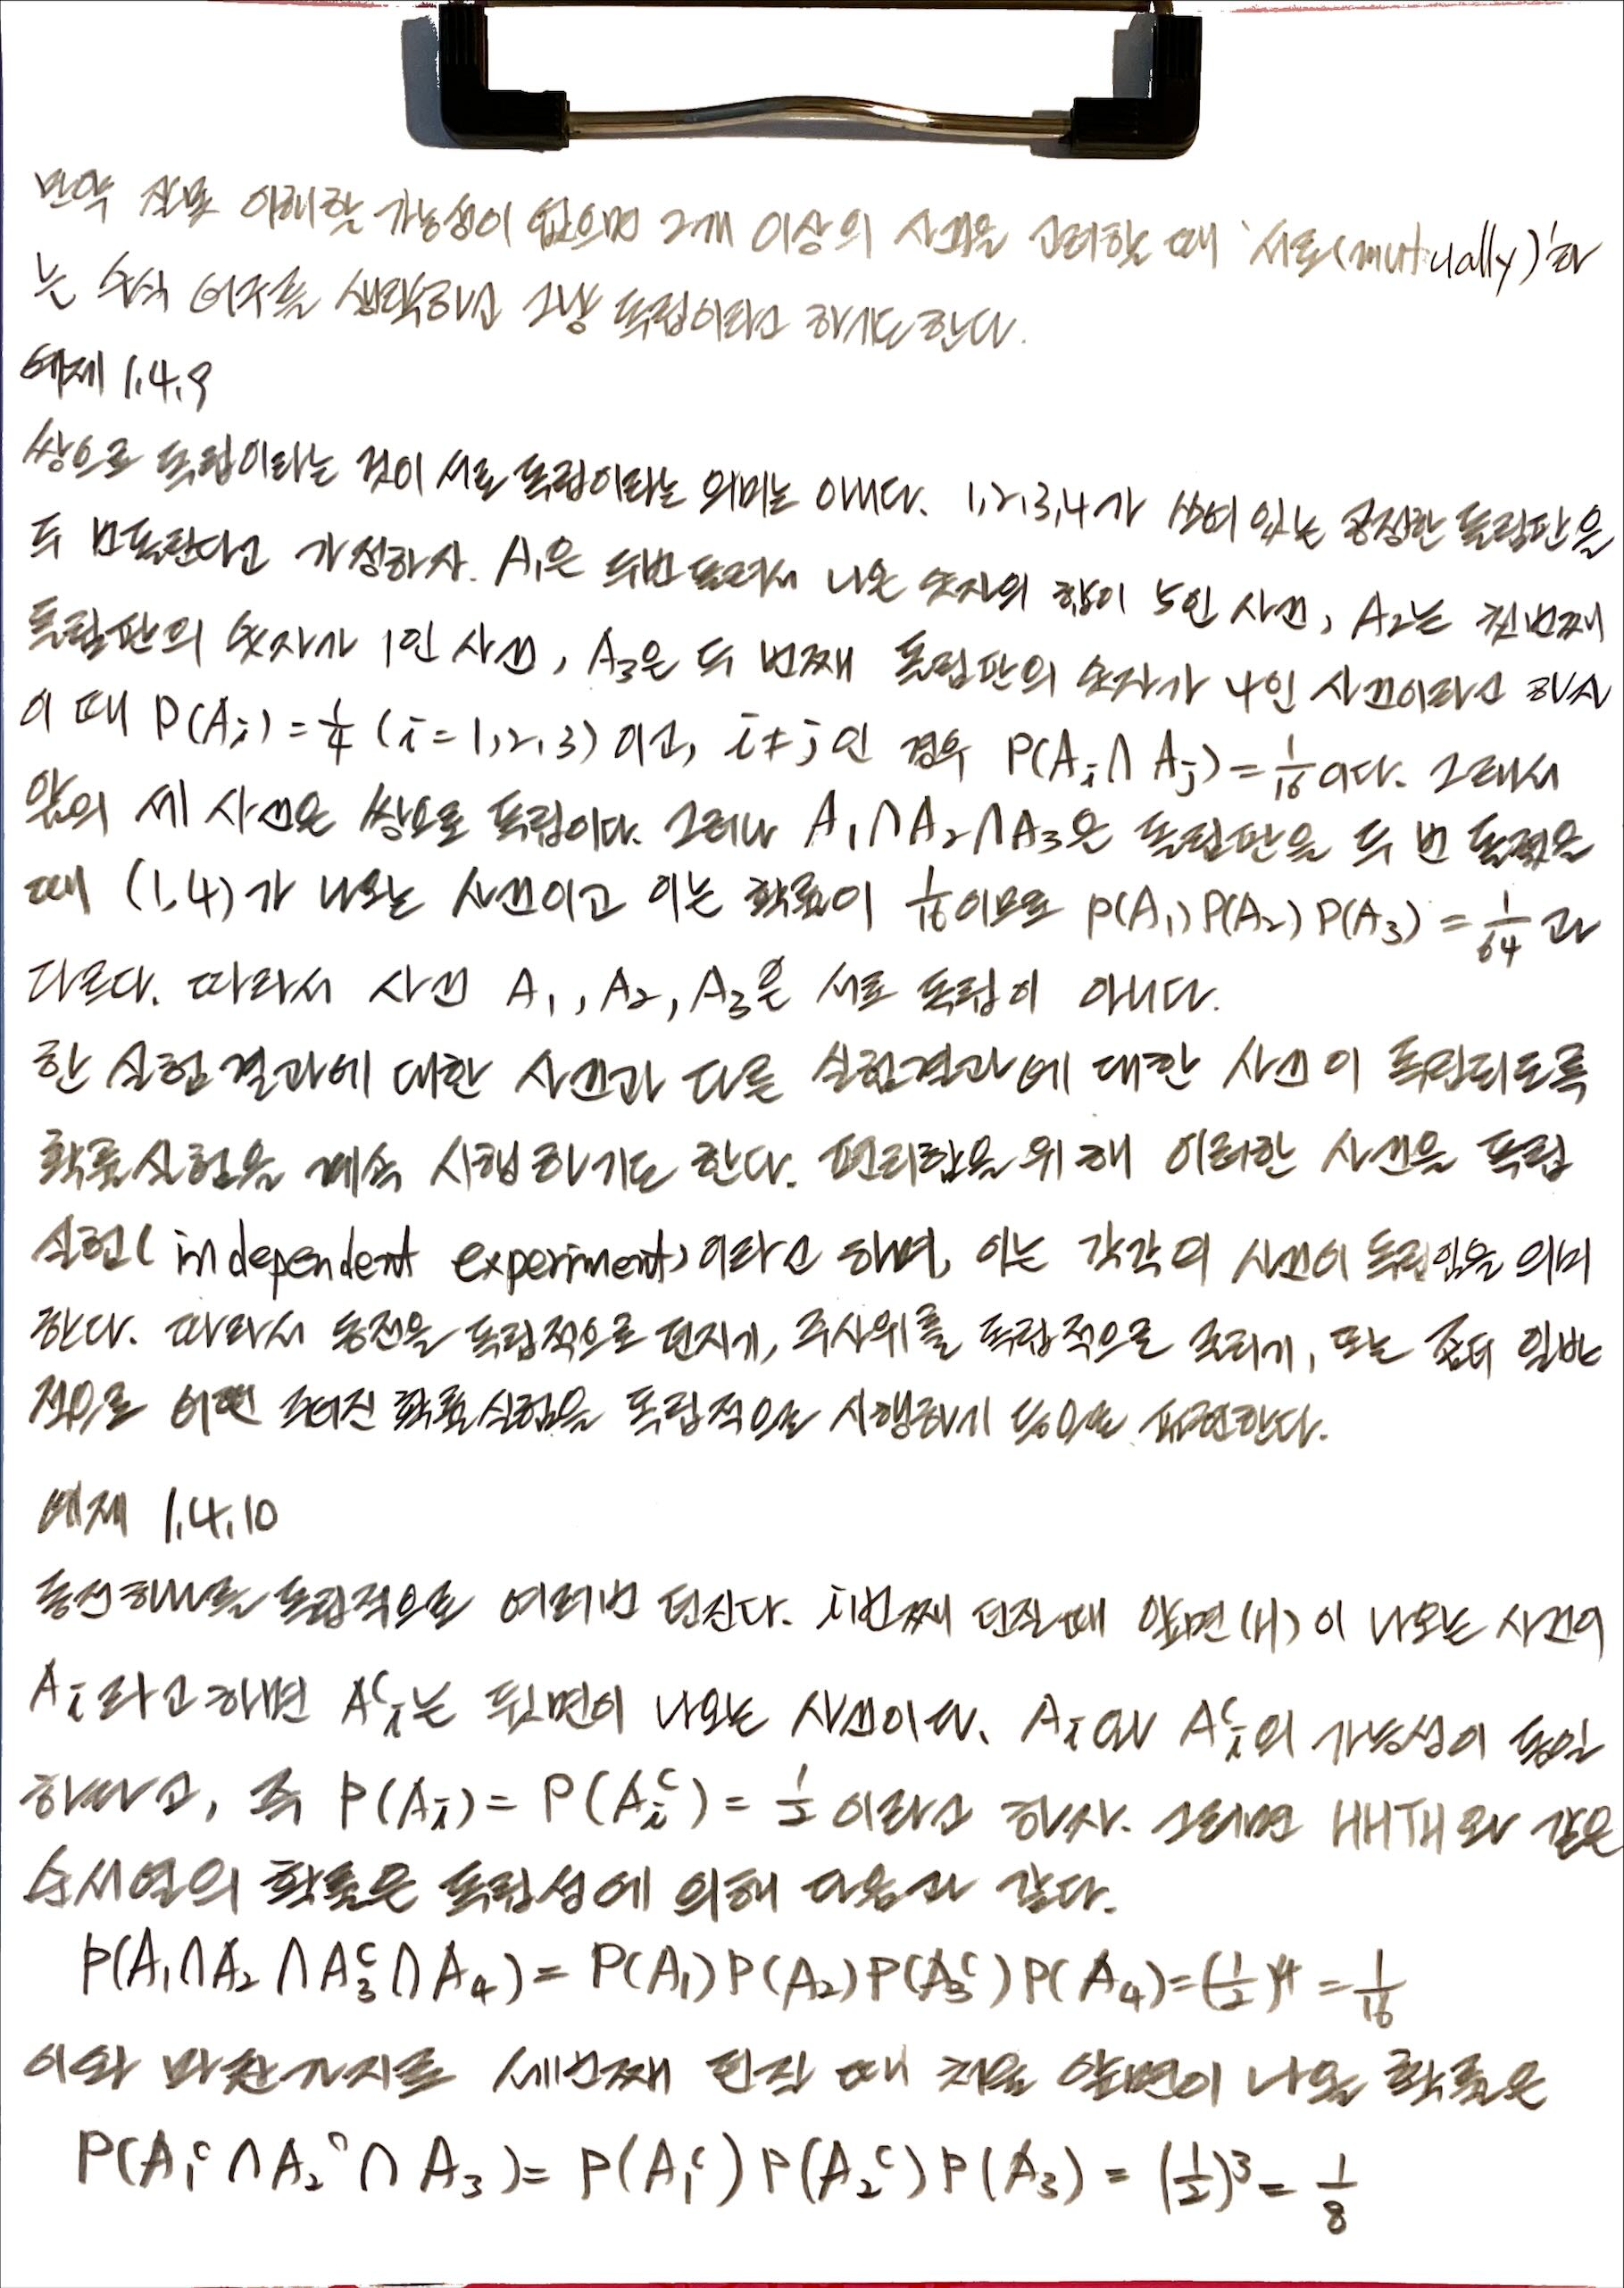 만약 잘못 이해할 가능성이 없으면 2개 이상의 사건을 고려할 때 '서로(mutually)'라
는 수식 어구를 생략하고 그냥 독립이라고 하기도 한다.
예제 1.4.9
쌍으로 독립이라는 것이 서로 독립이라는 의미는 아니다. 1,2,3,4가 쓰여 있는 공정한 돌림판을
두 번 돌린다고 가정하자. A₁은 두번 돌려서 나온 숫자의 합이 5인 사건, A₂는 첫번째
돌림판의 숫자가 1인 사건, A₃은 두 번째 돌림판의 숫자가 4인 사건이라고 하자
이 때 P(Aᵢ) = 1/4 (i = 1,2,3) 이고, i ≠ j 인 경우 P(Aᵢ ∩ Aⱼ) = 1/16 이다. 그래서
앞의 세 사건은 쌍으로 독립이다. 그러나 A₁ ∩ A₂ ∩ A₃은 돌림판을 두 번 돌렸을
때 (1,4)가 나오는 사건이고 이는 확률이 1/16 이므로 P(A₁) P(A₂) P(A₃) = 1/64 과
다르다. 따라서 사건 A₁, A₂, A₃은 서로 독립이 아니다.
한 실험 결과에 대한 사건과 다른 실험결과에 대한 사건이 독립되도록
확률실험을 계속 시행하기도 한다. 편리함을 위해 이러한 사건을 독립
실험(independent experiment)이라고 하며, 이는 각각의 사건이 독립임을 의미
한다. 따라서 동전을 독립적으로 던지기, 주사위를 독립적으로 굴리기, 또는 좀더 일반
적으로 어떤 주어진 확률실험을 독립적으로 시행하기 등으로 표현한다.
예제 1.4.10
동전 하나를 독립적으로 여러번 던진다. i번째 던질 때 앞면(H)이 나오는 사건이
Aᵢ라고 하면 Aᵢᶜ는 뒷면이 나오는 사건이다. Aᵢ와 Aᵢᶜ의 가능성이 동일
하다고, 즉 P(Aᵢ) = P(Aᵢᶜ) = 1/2 이라고 하자. 그러면 HHTH와 같은
순서열의 확률은 독립성에 의해 다음과 같다.
P(A₁ ∩ A₂ ∩ A₃ᶜ ∩ A₄) = P(A₁) P(A₂) P(A₃ᶜ) P(A₄) = (1/2)⁴ = 1/16
이와 마찬가지로 세번째 던질 때 처음 앞면이 나올 확률은
P(A₁ᶜ ∩ A₂ᶜ ∩ A₃) = P(A₁ᶜ) P(A₂ᶜ) P(A₃) = (1/2)³ = 1/8